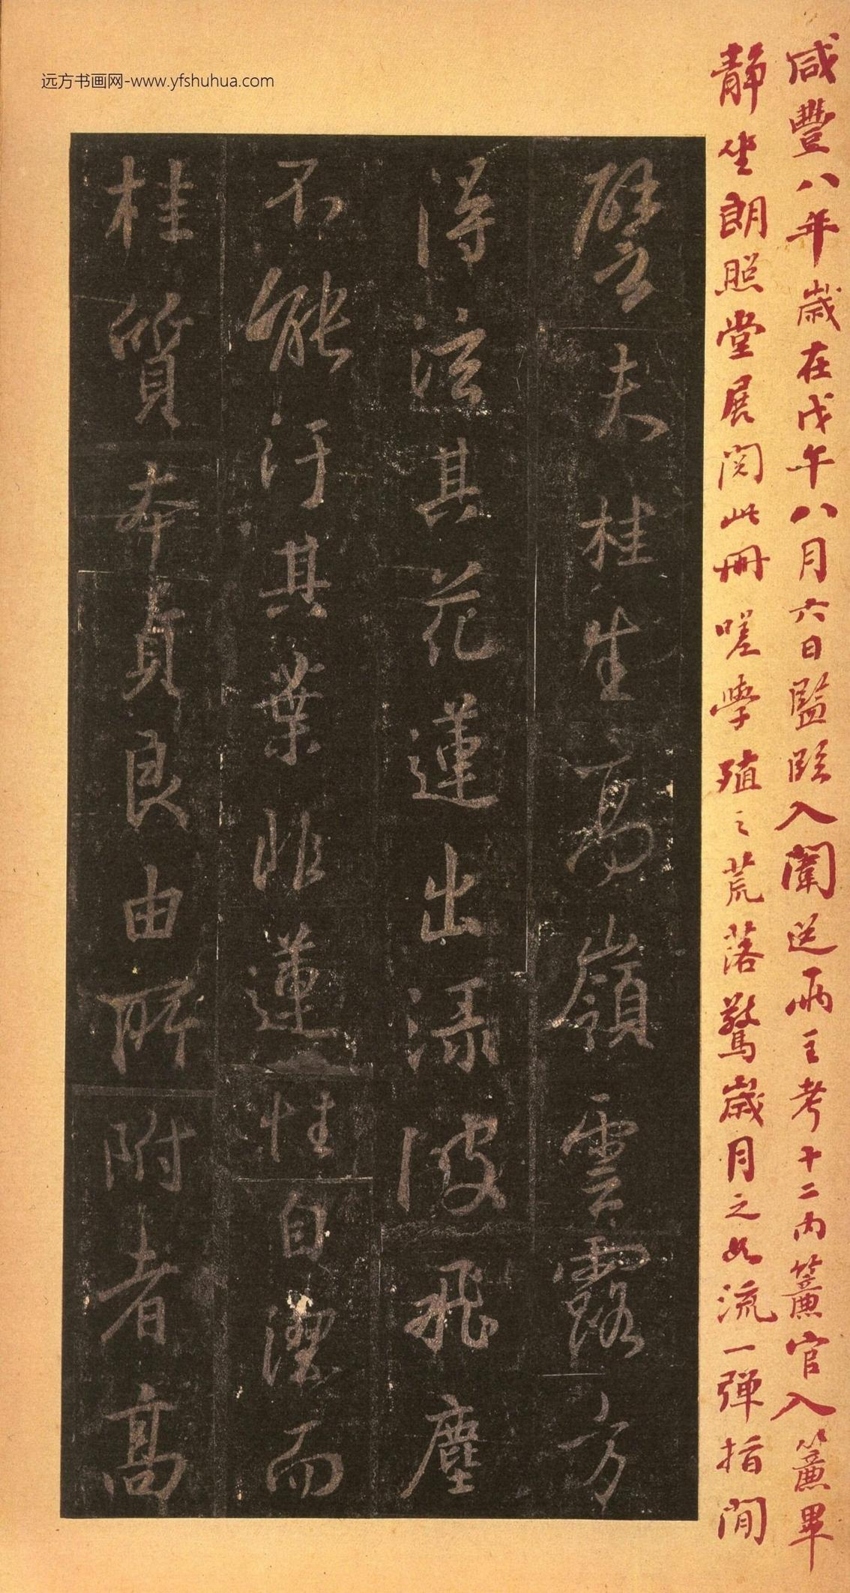 远方书画网-www.yfshuhua.com
咸豐八年歲在戊午八月六日監臨入闈送兩主考十二內簾官入簾畢
靜坐朗照堂展閱此冊嗟學殖之荒落驚歲月之如流一彈指間
譬夫桂生高嶺雲露方
得泫其花蓮出淥波飛塵
不能汙其葉非蓮性自潔而
桂質本貞良由所附者高